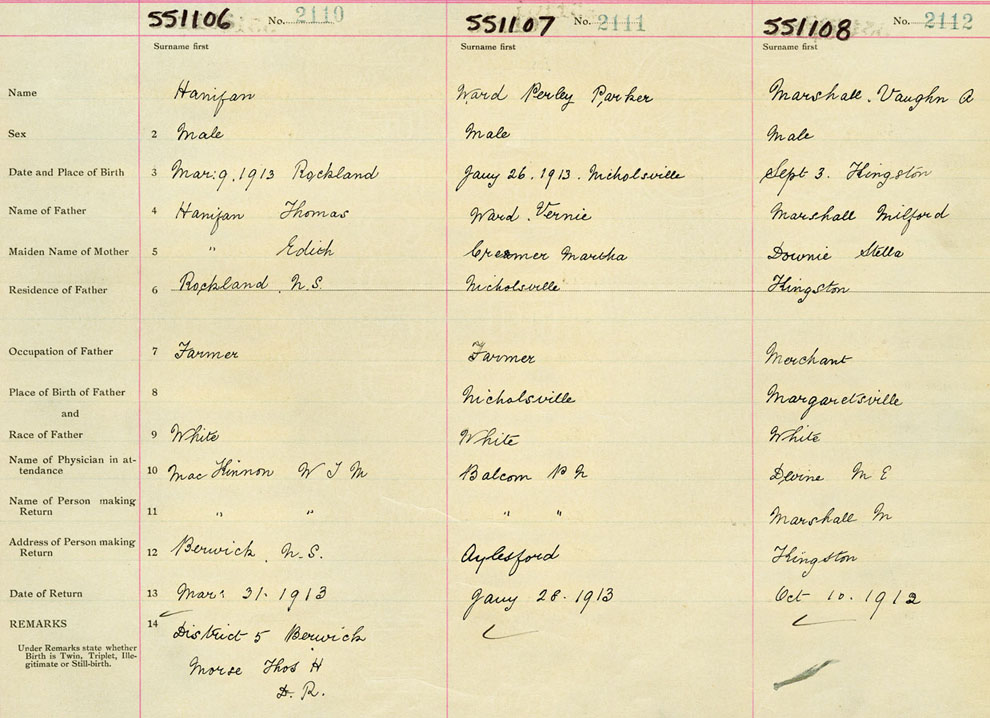 551106 No. 2110 551107 No. 2111 551108 No. 2112
Surname first Surname first Surname first
Name Hanifan Ward Perley Parker Marshall. Vaughn A
Sex 2 Male Male Male
Date and Place of Birth 3 Mar. 9. 1913 Rockland Jany 26. 1913. Nicholsville Sept 3. Kingston
Name of Father 4 Hanifan Thomas Ward. Vernie Marshall Milford
Maiden Name of Mother 5 " Edith Creamer Martha Downie Stella
Residence of Father 6 Rockland N.S. Nicholsville Kingston
Occupation of Father 7 Farmer Farmer Merchant
Place of Birth of Father 8 Nicholsville Margaretsville
and
Race of Father 9 White White White
Name of Physician in at-
tendance 10 MacKinnon W J M Balcom P N Devine M E
Name of Person making
Return 11 " " " " Marshall M
Address of Person making
Return 12 Berwick, N.S. Aylesford Kingston
Date of Return 13 Mar. 31. 1913 Jany 28. 1913 Oct 10. 1912
REMARKS 14 District 5 Berwick
Under Remarks state whether
Birth is Twin, Triplet, Ille-
gitimate or Still-birth.
Morse Thos H
D. R.